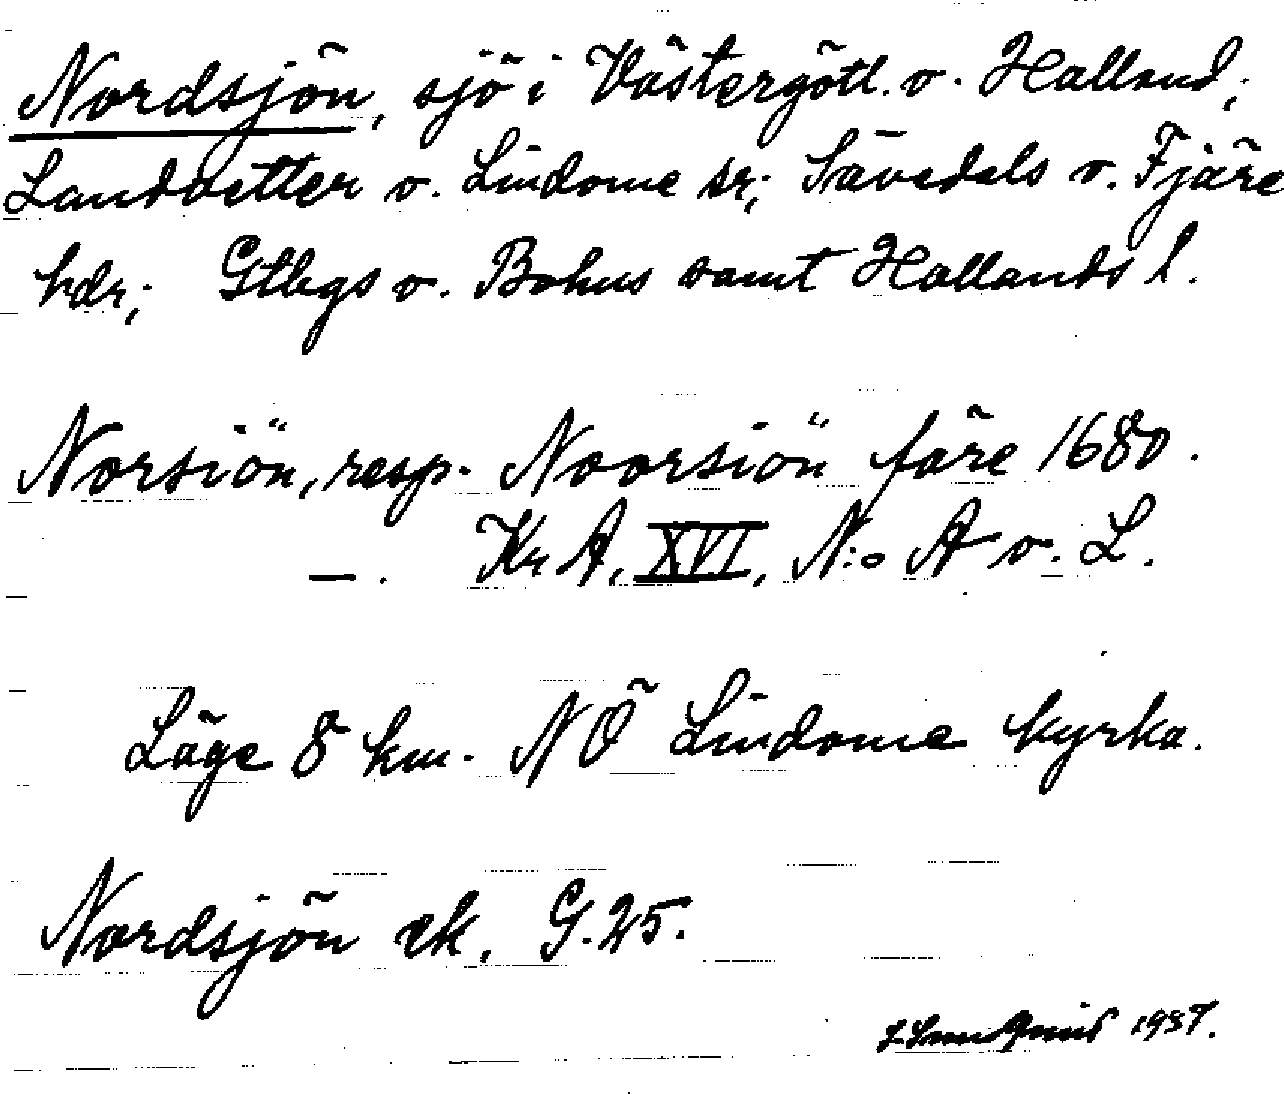 Nordsjön, sjö i Västergötl. o. Halland;
Landvetter o. Lindome sr; Sävedals o. Fjäre
hdr; Gtbgs o. Bohus samt Hallands l.
Norsiön, resp. Noorsiön före 1680.
—. KrA, XVI, N:o A o. L.
Läge 8 km. NÖ Lindome kyrka.
Nordsjön ek. G.25.
1937.